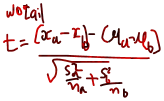 wotail
t = (x̄a - x̄b) - (μa - μb) / √(s²a/na + s²b/nb)